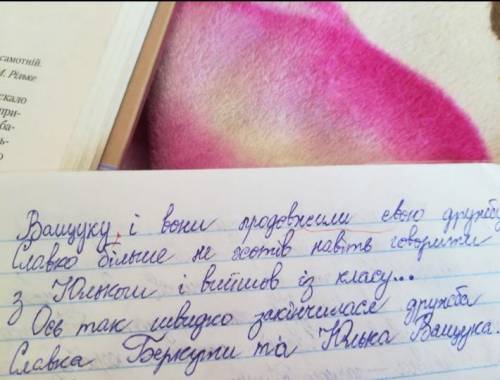 самотній.
М. Рільке
скало
при-
ба-
ль-
о
Ващуку, і вони продовжили свою дружбу
Славко більше не хотів навіть говорити
з Юльком і вийшов із класу...
Ось так швидко закінчилася дружба
Славка Беркути та Юлька Ващука.